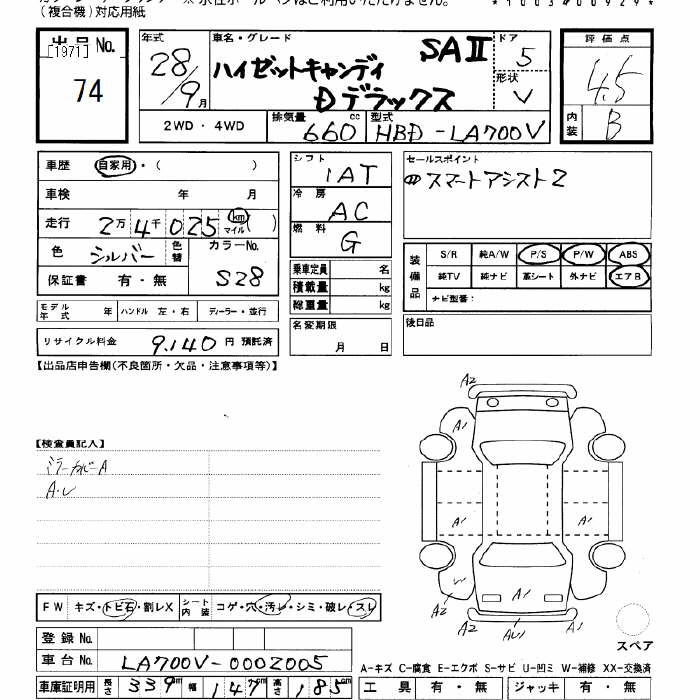 (複合機)対応用紙
*1003*00929*
出品No.
[1971]
74
年式
28/9月
車名・グレード
SAII
ハイゼットキャディ
Dデラックス
ドア
5
形状
V
評価点
4.5
内装
B
2WD・4WD
排気量
660
cc
型式
HBD-LA700V
車歴
自家用・( )
車検 年 月
走行 2万4千025 km マイル( )
色 シルバー 色替
カラーNo. S28
保証書 有・無
モデル年式 年 ハンドル 左・右 ディーラー・並行
リサイクル料金 9,140 円 預託済
シフト
IAT
冷房
AC
燃料
G
乗車定員 名
積載量 kg
総重量 kg
名変期限
月 日
セールスポイント
スマートアシスト2
装備品
S/R 純A/W P/S P/W ABS
純TV 純ナビ 革シート 外ナビ エアB
ナビ型番:
後日品
【出品店申告欄(不良箇所・欠品・注意事項等)】
【検査員記入】
ミラーカバーA
A・U
A2
A1
A1
A1
A1
W
A2
A2
AU1
A1
A2
スペア
FW キズ・トビ石・割レX
シート内装 コゲ・穴・汚レ・シミ・破レ・スレ
登録No.
車台No. LA700V-0002005
車庫証明用 長さ 339m 幅 147m 高さ 185cm
A-キズ C-腐食 E-エクボ S-サビ U-凹ミ W-補修 XX-交換済
工具 有・無 ジャッキ 有・無